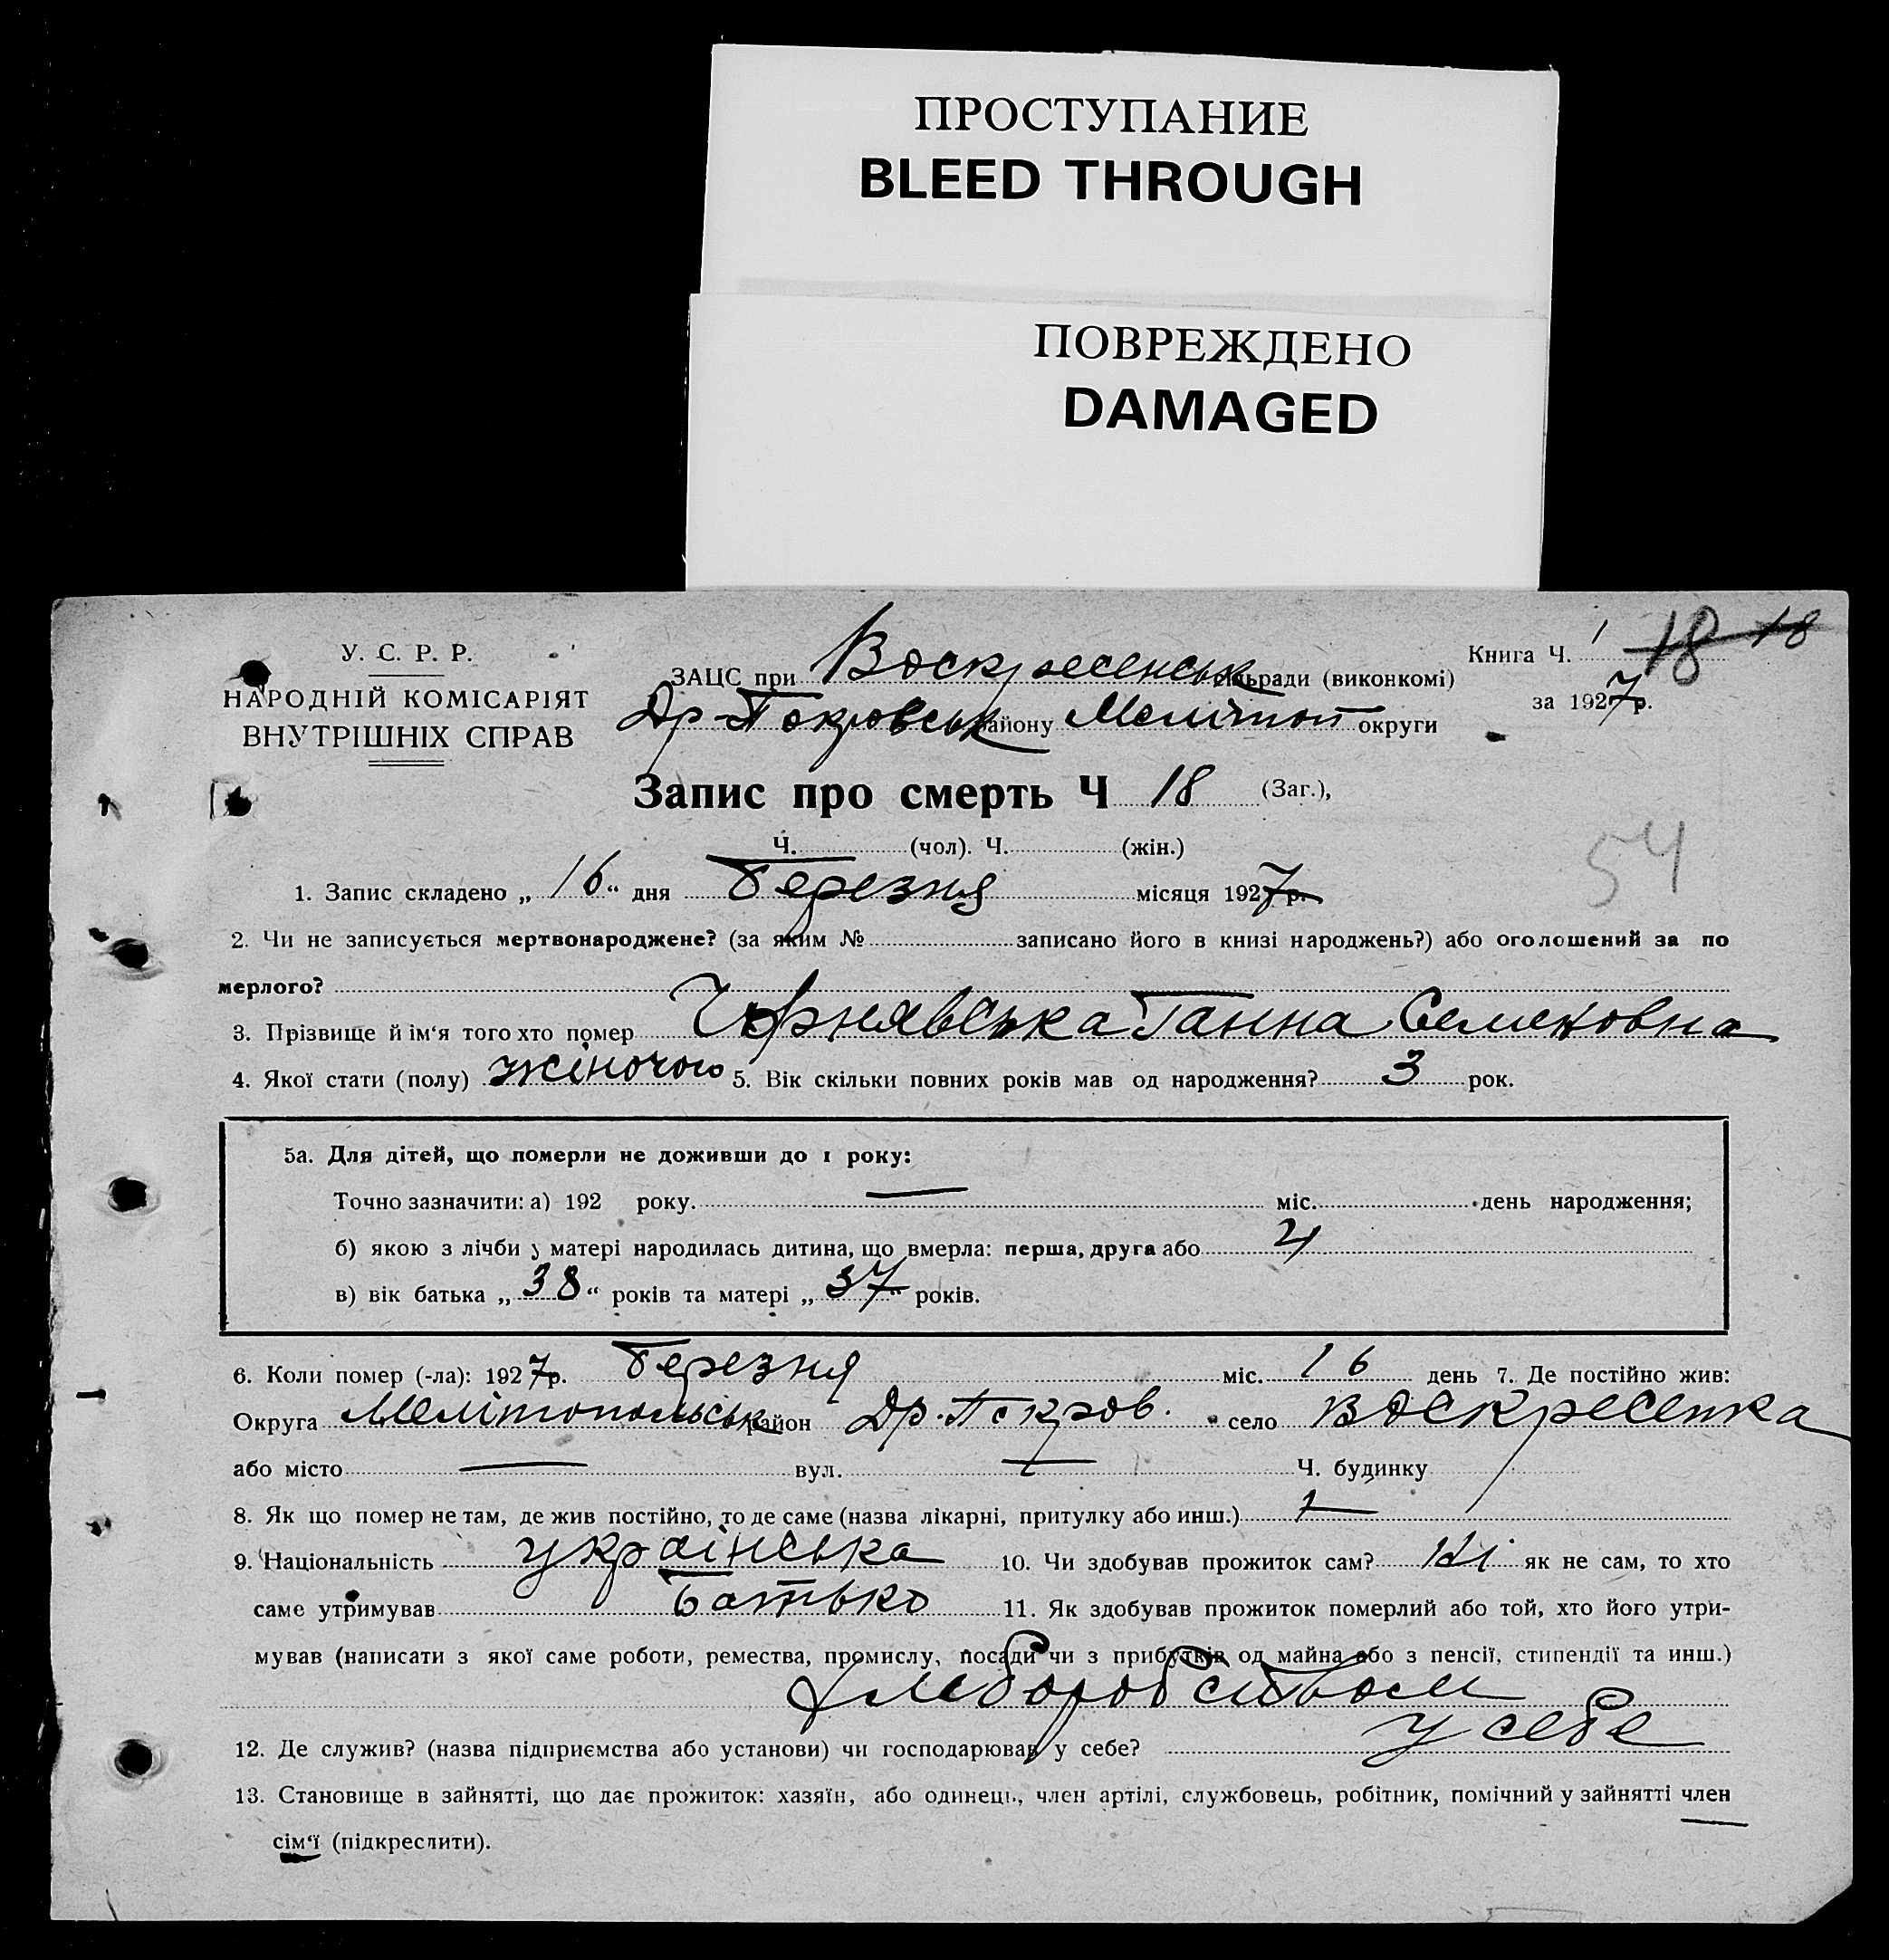 ПРОСТУПАНИЕ
BLEED THROUGH
ПОВРЕЖДЕНО
DAMAGED
У. С. Р. Р.
НАРОДНІЙ КОМІСАРІЯТ
ВНУТРІШНІХ СПРАВ
ЗАЦС при Воскресенськ сільради (виконкомі)
Др-Покровськ району Мелітоп округи
Книга Ч. 1 18 18
за 1927 р.
Запис про смерть Ч 18 (Заг.),
Ч. (чол). Ч. (жін.)
54
1. Запис складено „ 16 “ дня Березня місяця 1927 р.
2. Чи не записується мертвонароджене? (за яким № записано його в книзі народжень?) або оголошений за по
мерлого?
3. Прізвище й ім‘я того хто помер Чорнявська Ганна Семеновна
4. Якої стати (полу) жіночого 5. Вік скільки повних років мав од народження? 3 рок.
5а. Для дітей, що померли не доживши до 1 року:
Точно зазначити: а) 192 року. — міс. день народження;
б) якою з лічби у матері народилась дитина, що вмерла: перша, друга або 4
в) вік батька „ 38 “ років та матері „ 37 “ років.
6. Коли помер (-ла): 1927 р. Березня міс. 16 день 7. Де постійно жив:
Округа Мелітопольськ район Др. Покров. село Воскресенка
або місто — вул. — Ч. будинку
8. Як що помер не там, де жив постійно, то де саме (назва лікарні, притулку або инш.) —
9. Національність українська 10. Чи здобував прожиток сам? Ні як не сам, то хто
саме утримував батько 11. Як здобував прожиток померлий або той, хто його утри-
мував (написати з якої саме роботи, ремества, промислу, посади чи з прибутків од майна або з пенсії, стипендії та инш.)
хлеборобством
12. Де служив? (назва підприємства або установи) чи господарював у себе? у себе
13. Становище в зайнятті, що дає прожиток: хазяїн, або одинець, член артілі, службовець, робітник, помічний у зайнятті член
сім‘ї (підкреслити).